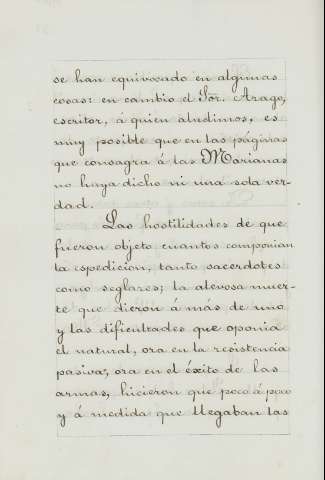 se han equivocado en algunas
cosas: en cambio el Sor. Arago,
escritor, á quien aludimos, es
muy posible que en las páginas
que consagra á las Marianas
no haya dicho ni una sola ver-
dad.
Las hostilidades de que
fueron objeto cuantos componian
la espedicion, tanto sacerdotes
como seglares; la alevosa muer-
te que dieron á más de uno
y las dificultades que oponia
el natural, ora en la resistencia
pasiva, ora en el éxito de las
armas, hicieron que poco á poco
y á medida que llegaban las